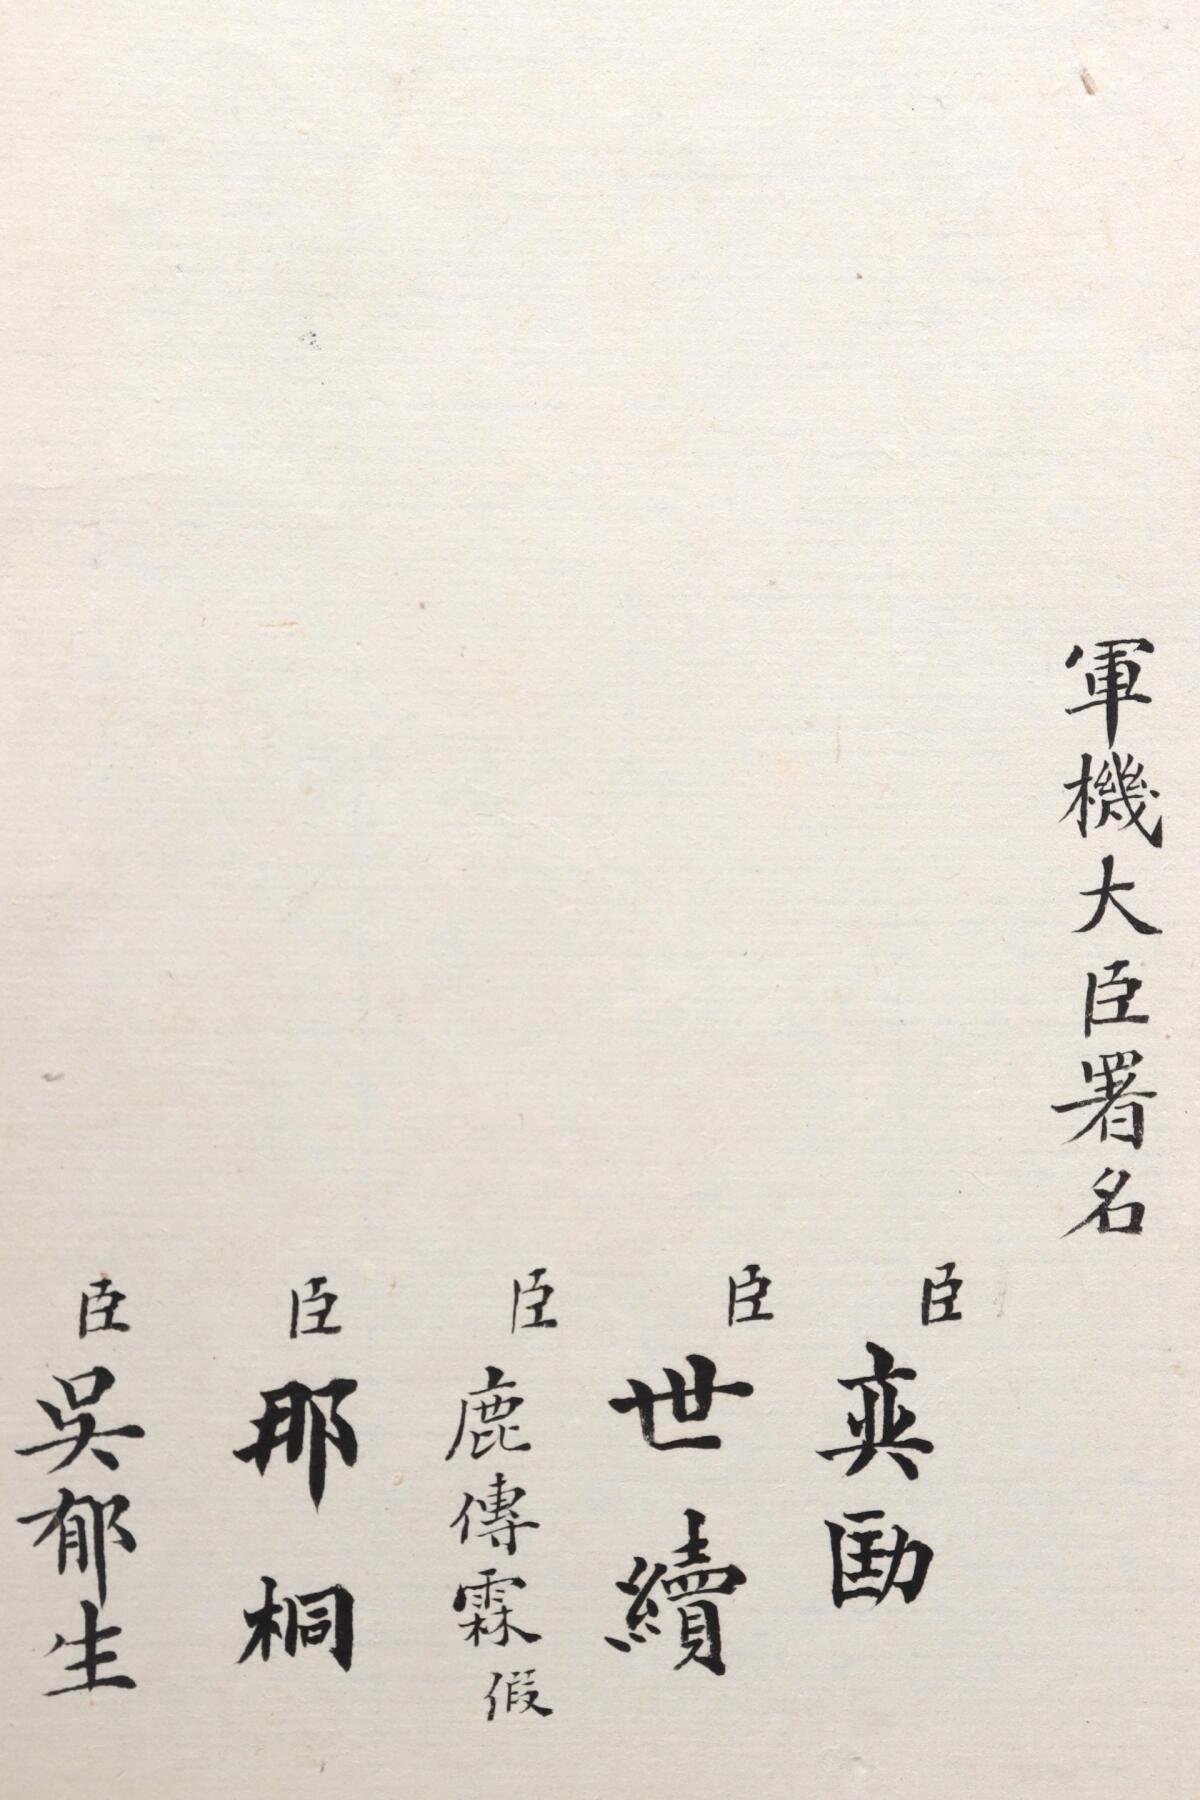 軍機大臣署名
臣奕劻
臣世續
臣鹿傳霖假
臣那桐
臣吳郁生